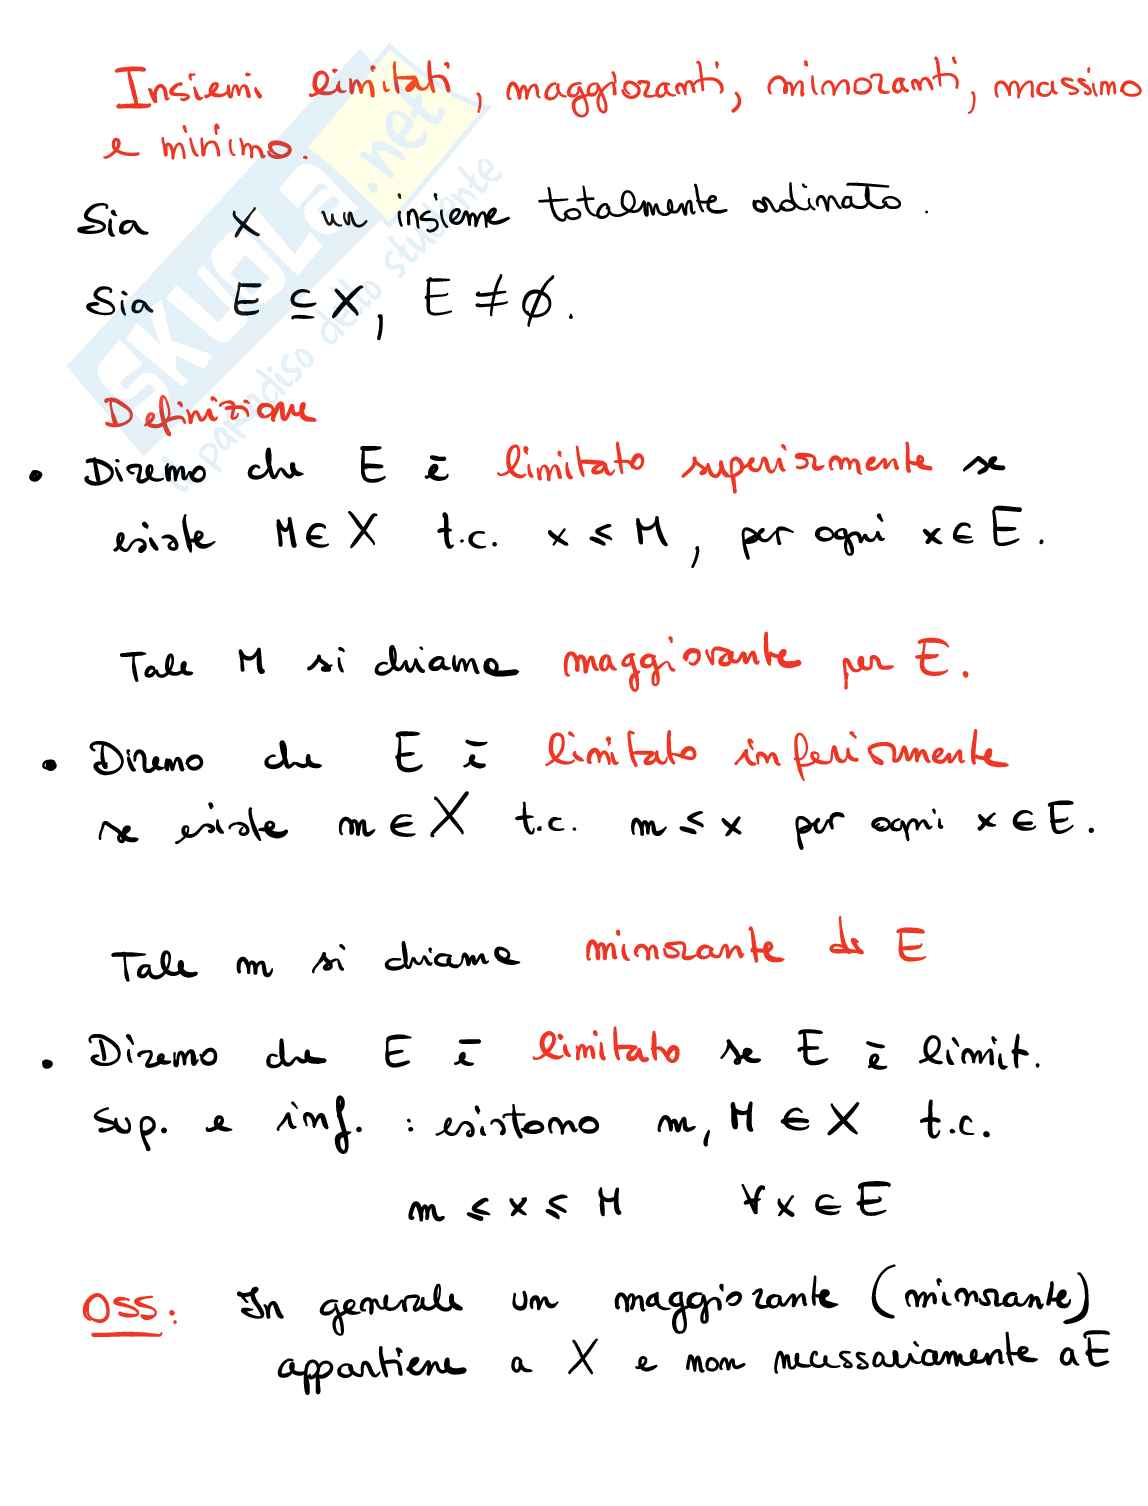 Insiemi limitati, maggioranti, minoranti, massimo
e minimo.
Sia X un insieme totalmente ordinato.
Sia E ⊆ X, E ≠ ∅.
Definizione
• Diremo che E è limitato superiormente se
esiste M ∈ X t.c. x ≤ M, per ogni x ∈ E.
Tale M si chiama maggiorante per E.
• Diremo che E è limitato inferiormente
se esiste m ∈ X t.c. m ≤ x per ogni x ∈ E.
Tale m si chiama minorante di E
• Diremo che E è limitato se E è limit.
sup. e inf. : esistono m, M ∈ X t.c.
m ≤ x ≤ M ∀x ∈ E
OSS: In generale un maggiorante (minorante)
appartiene a X e non necessariamente a E
SKUOLA.net
il paradiso dello studente